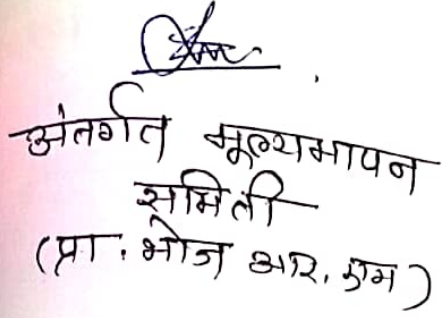 अंतर्गत मूल्यमापन
समिती
(प्रा. भोज आर. एम)